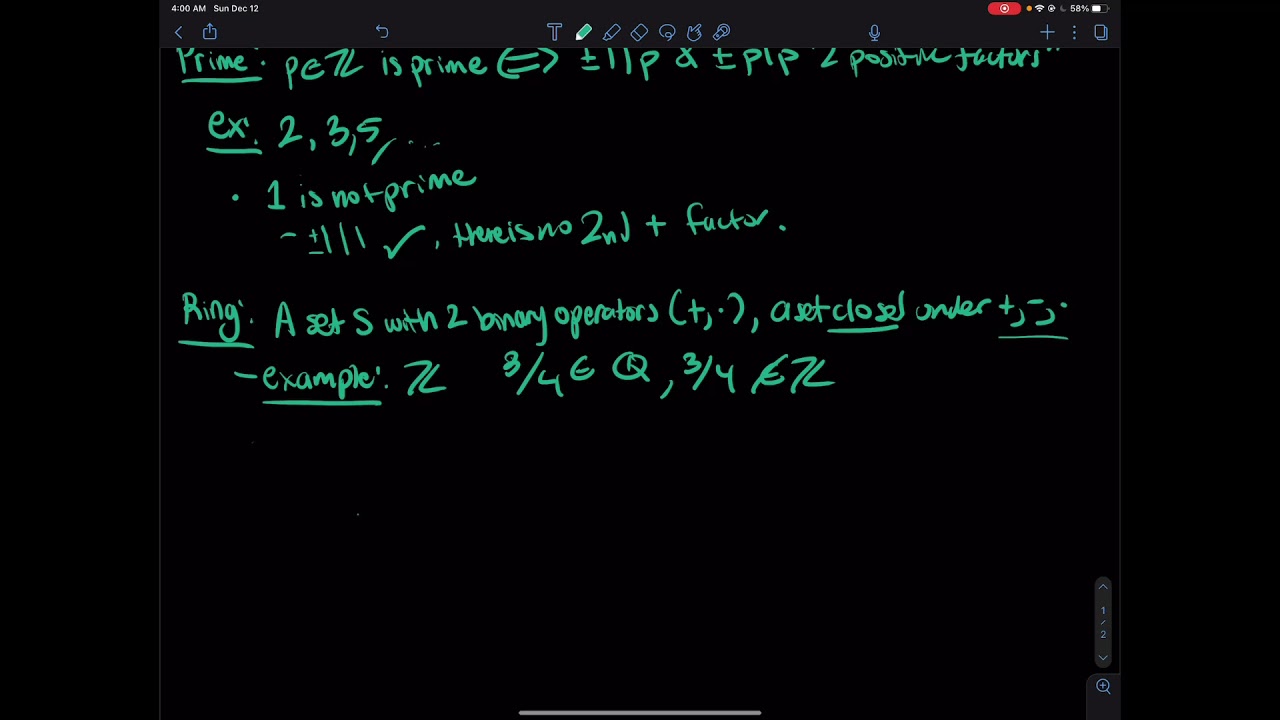 4:00 AM Sun Dec 12 58%
Prime: p∈ℤ is prime ⟺ ±1|p & ±p|p "2 positive factors"
ex: 2, 3, 5, ...
• 1 is not prime
- ±1|1 ✓, there is no 2nd + factor.
Ring: A set S with 2 binary operators (+, ·), a set closed under +, -, ·
- example: ℤ 3/4 ∈ ℚ, 3/4 ∉ ℤ
1
/
2